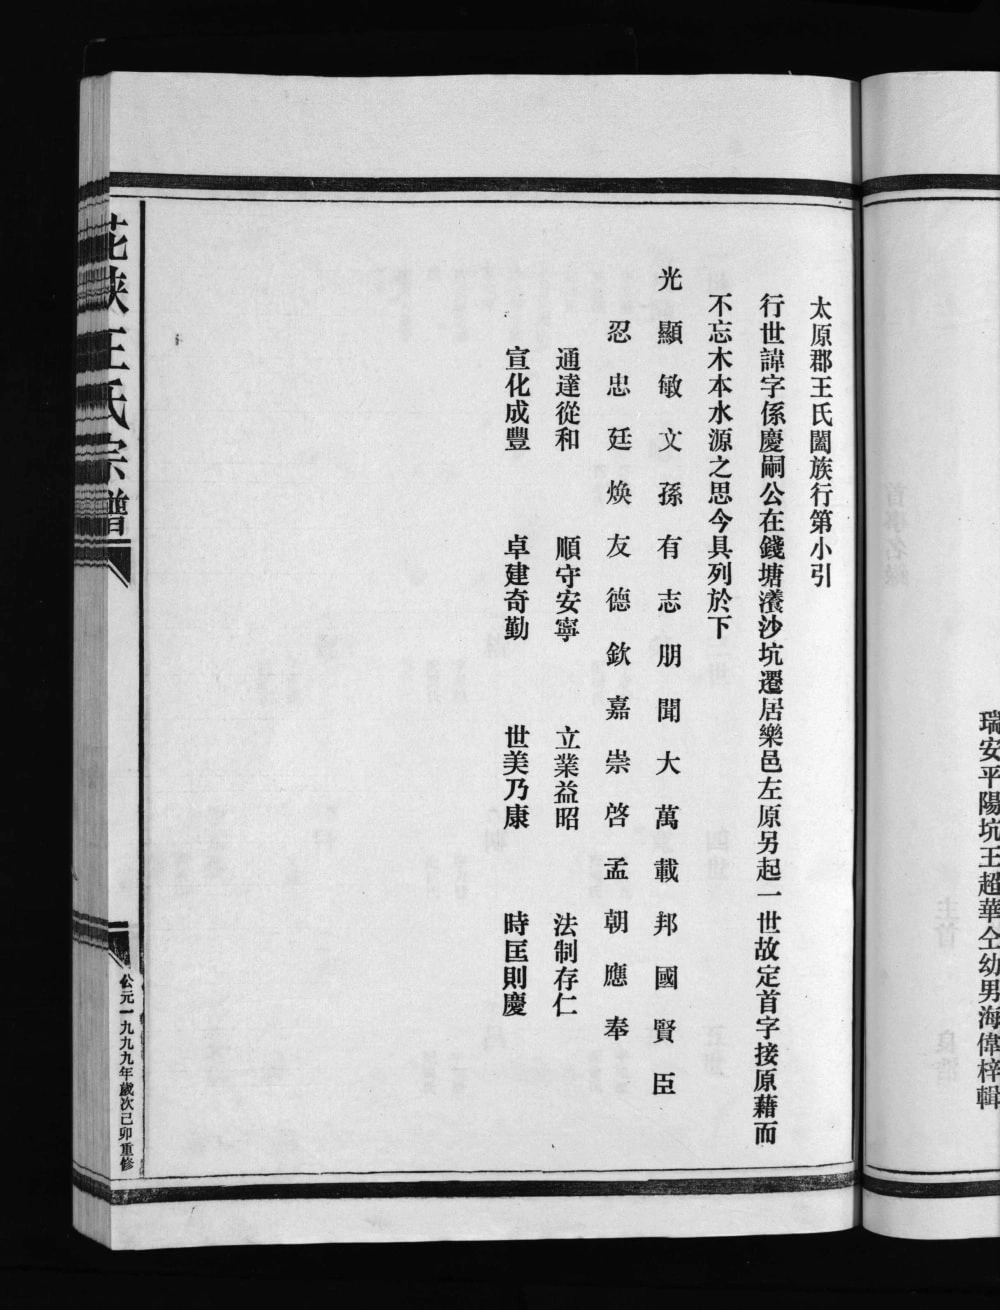 瑞安平陽坑王超華仝幼男海偉梓輯
太原郡王氏闔族行第小引
行世諱字係慶嗣公在錢塘濸沙坑遷居樂邑左原另起一世故定首字接原藉而
不忘木本水源之思今具列於下
光顯敏文孫有志朋聞大萬載邦國賢臣
忍忠廷煥友德欽嘉崇啓孟朝應奉
通達從和　順守安寧　立業益昭　法制存仁
宣化成豐　卓建奇勤　世美乃康　時匡則慶
王氏宗譜
公元一九九九年歲次己卯重修